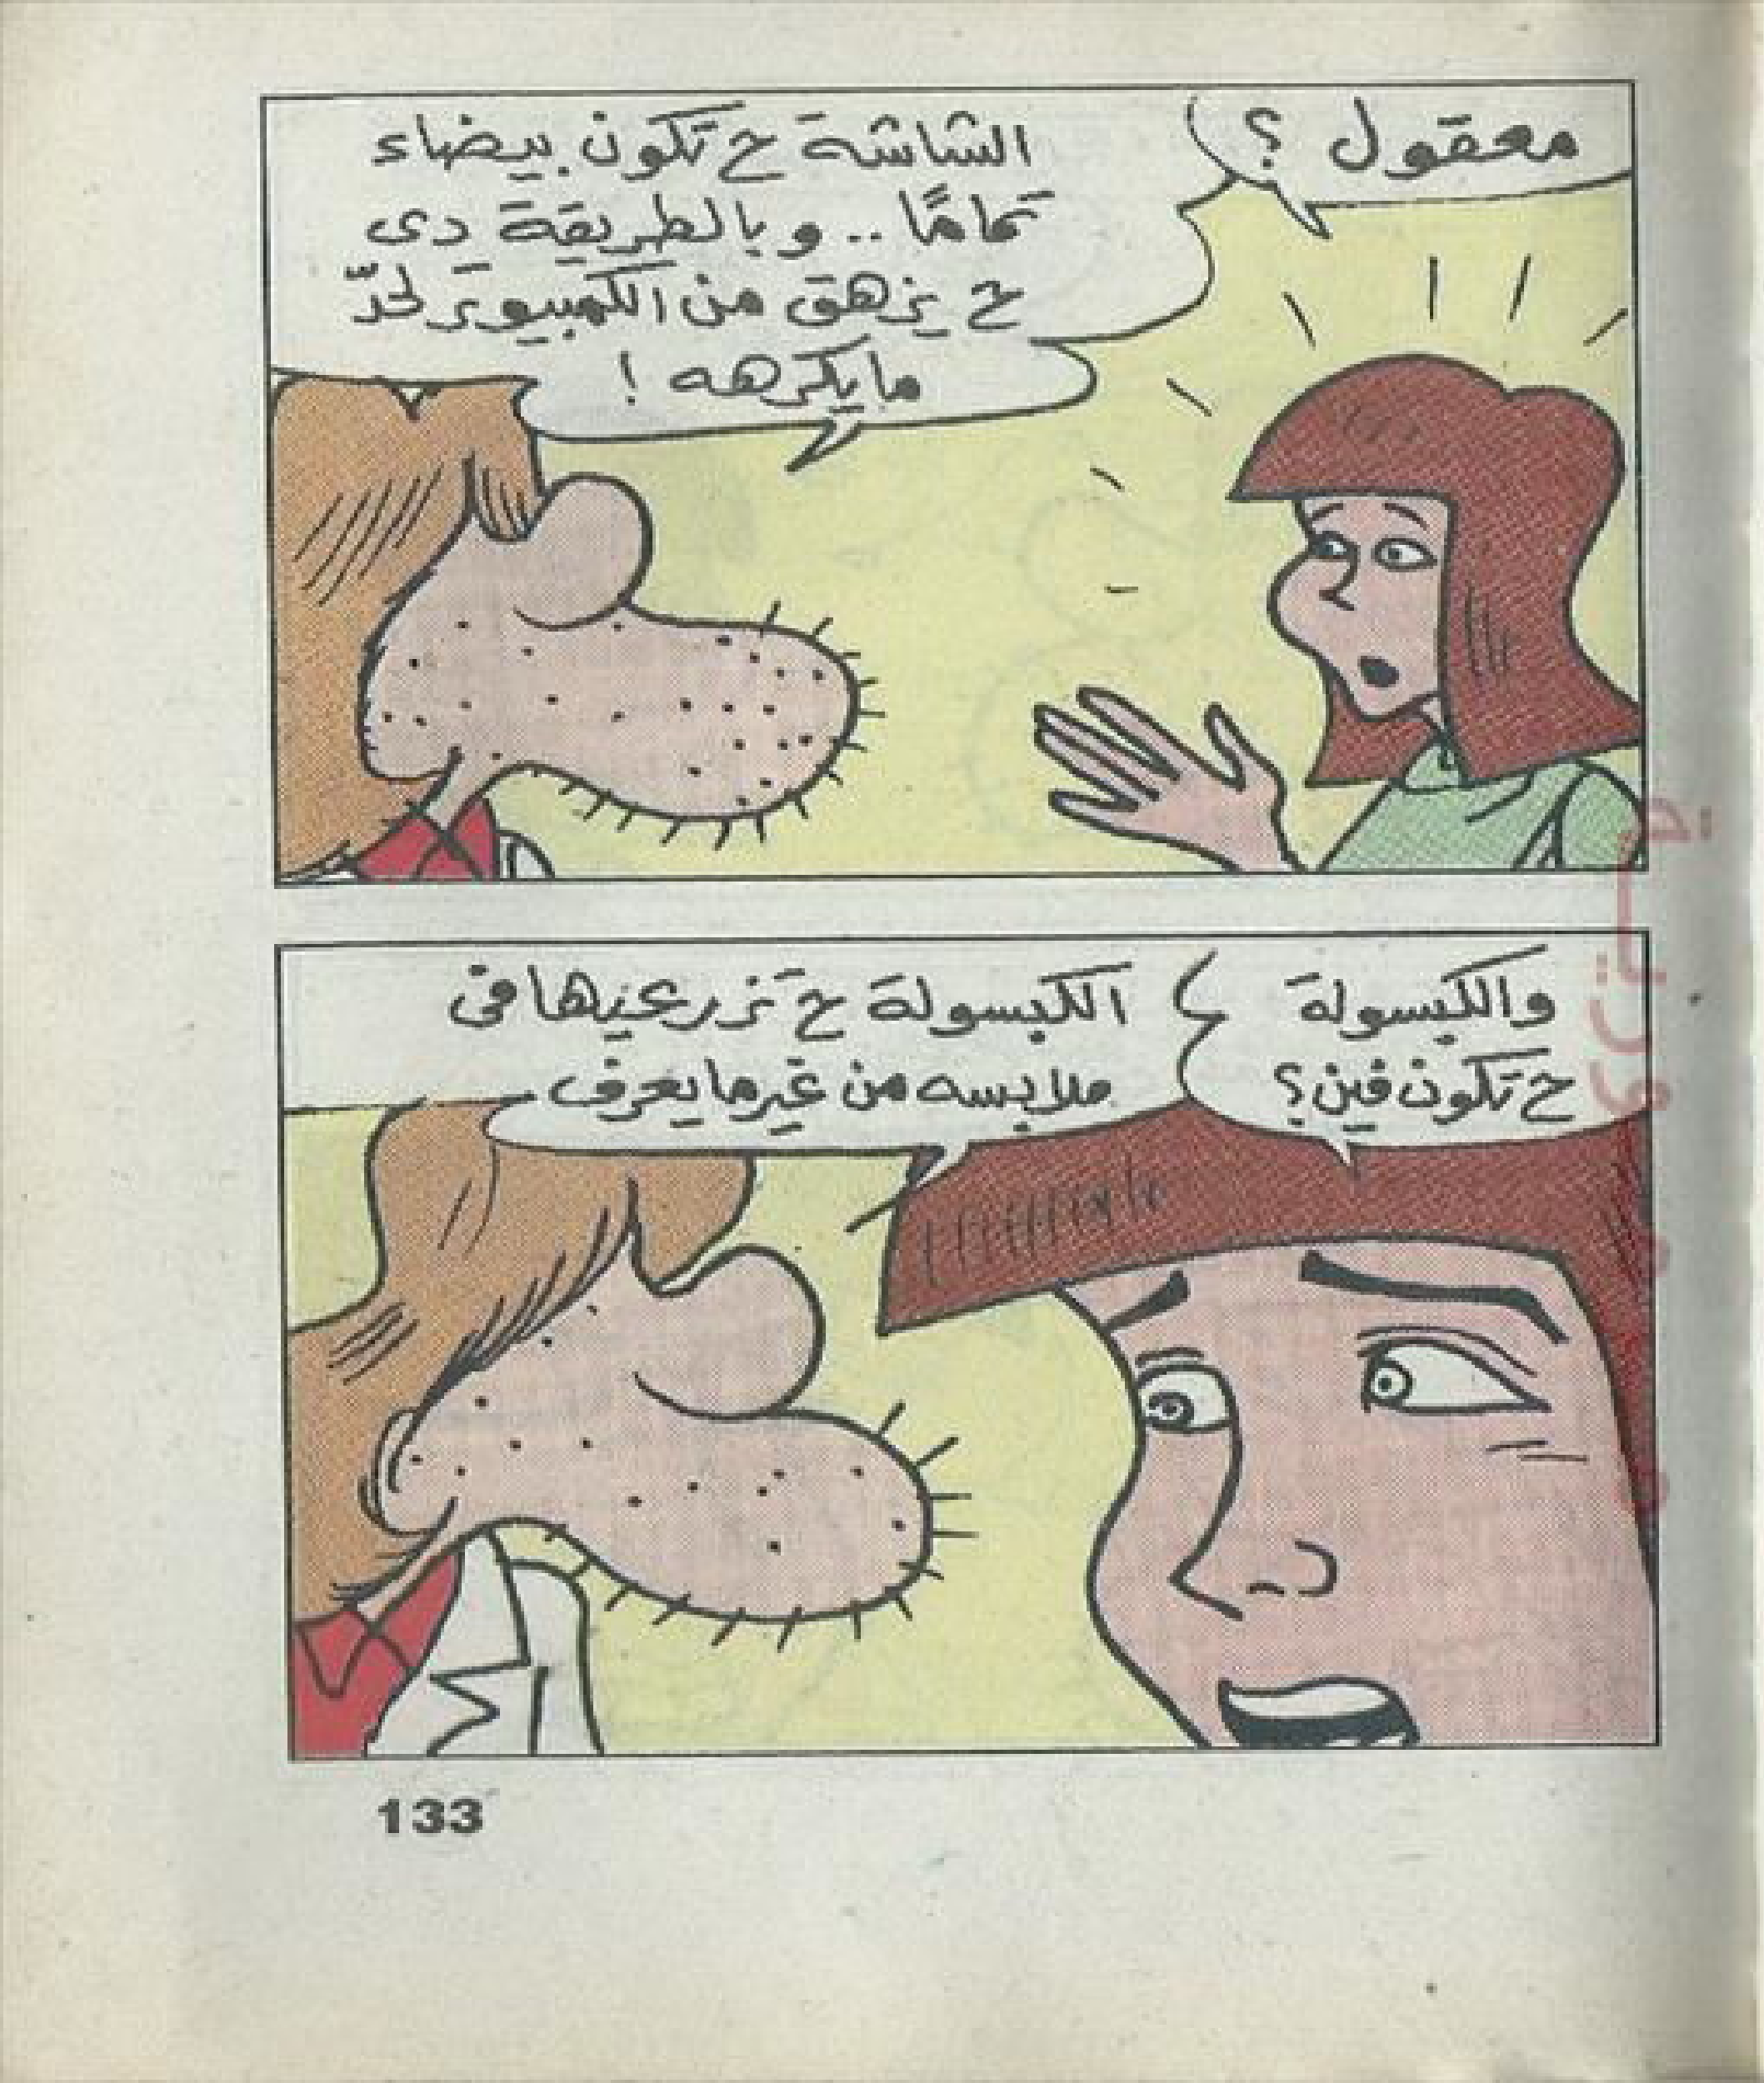 معقول ؟
الشاشة ح تكون بيضاء
تمامًا .. و بالطريقة دى
ح يزهق من الكمبيوتر لحدّ
ما يكرهه !
والكبسولة
ح تكون فين ؟
الكبسولة ح تزرعيها فى
ملابسه من غير ما يعرف
133